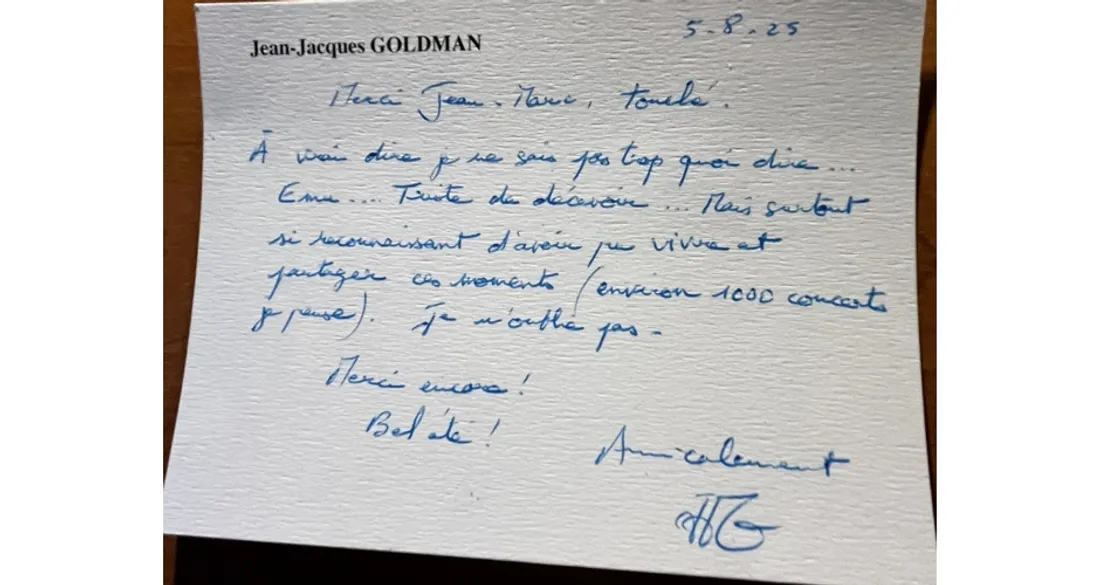 Jean-Jacques GOLDMAN
5-8-25
Merci Jean-Marc, touché.
À vrai dire je ne sais pas trop quoi dire...
Emu.... Triste de décevoir... Mais surtout
si reconnaissant d'avoir pu vivre et
partager ces moments (environ 1000 concerts
je pense). Je n'oublie pas -
Merci encore !
Bel été !
Amicalement
JJG